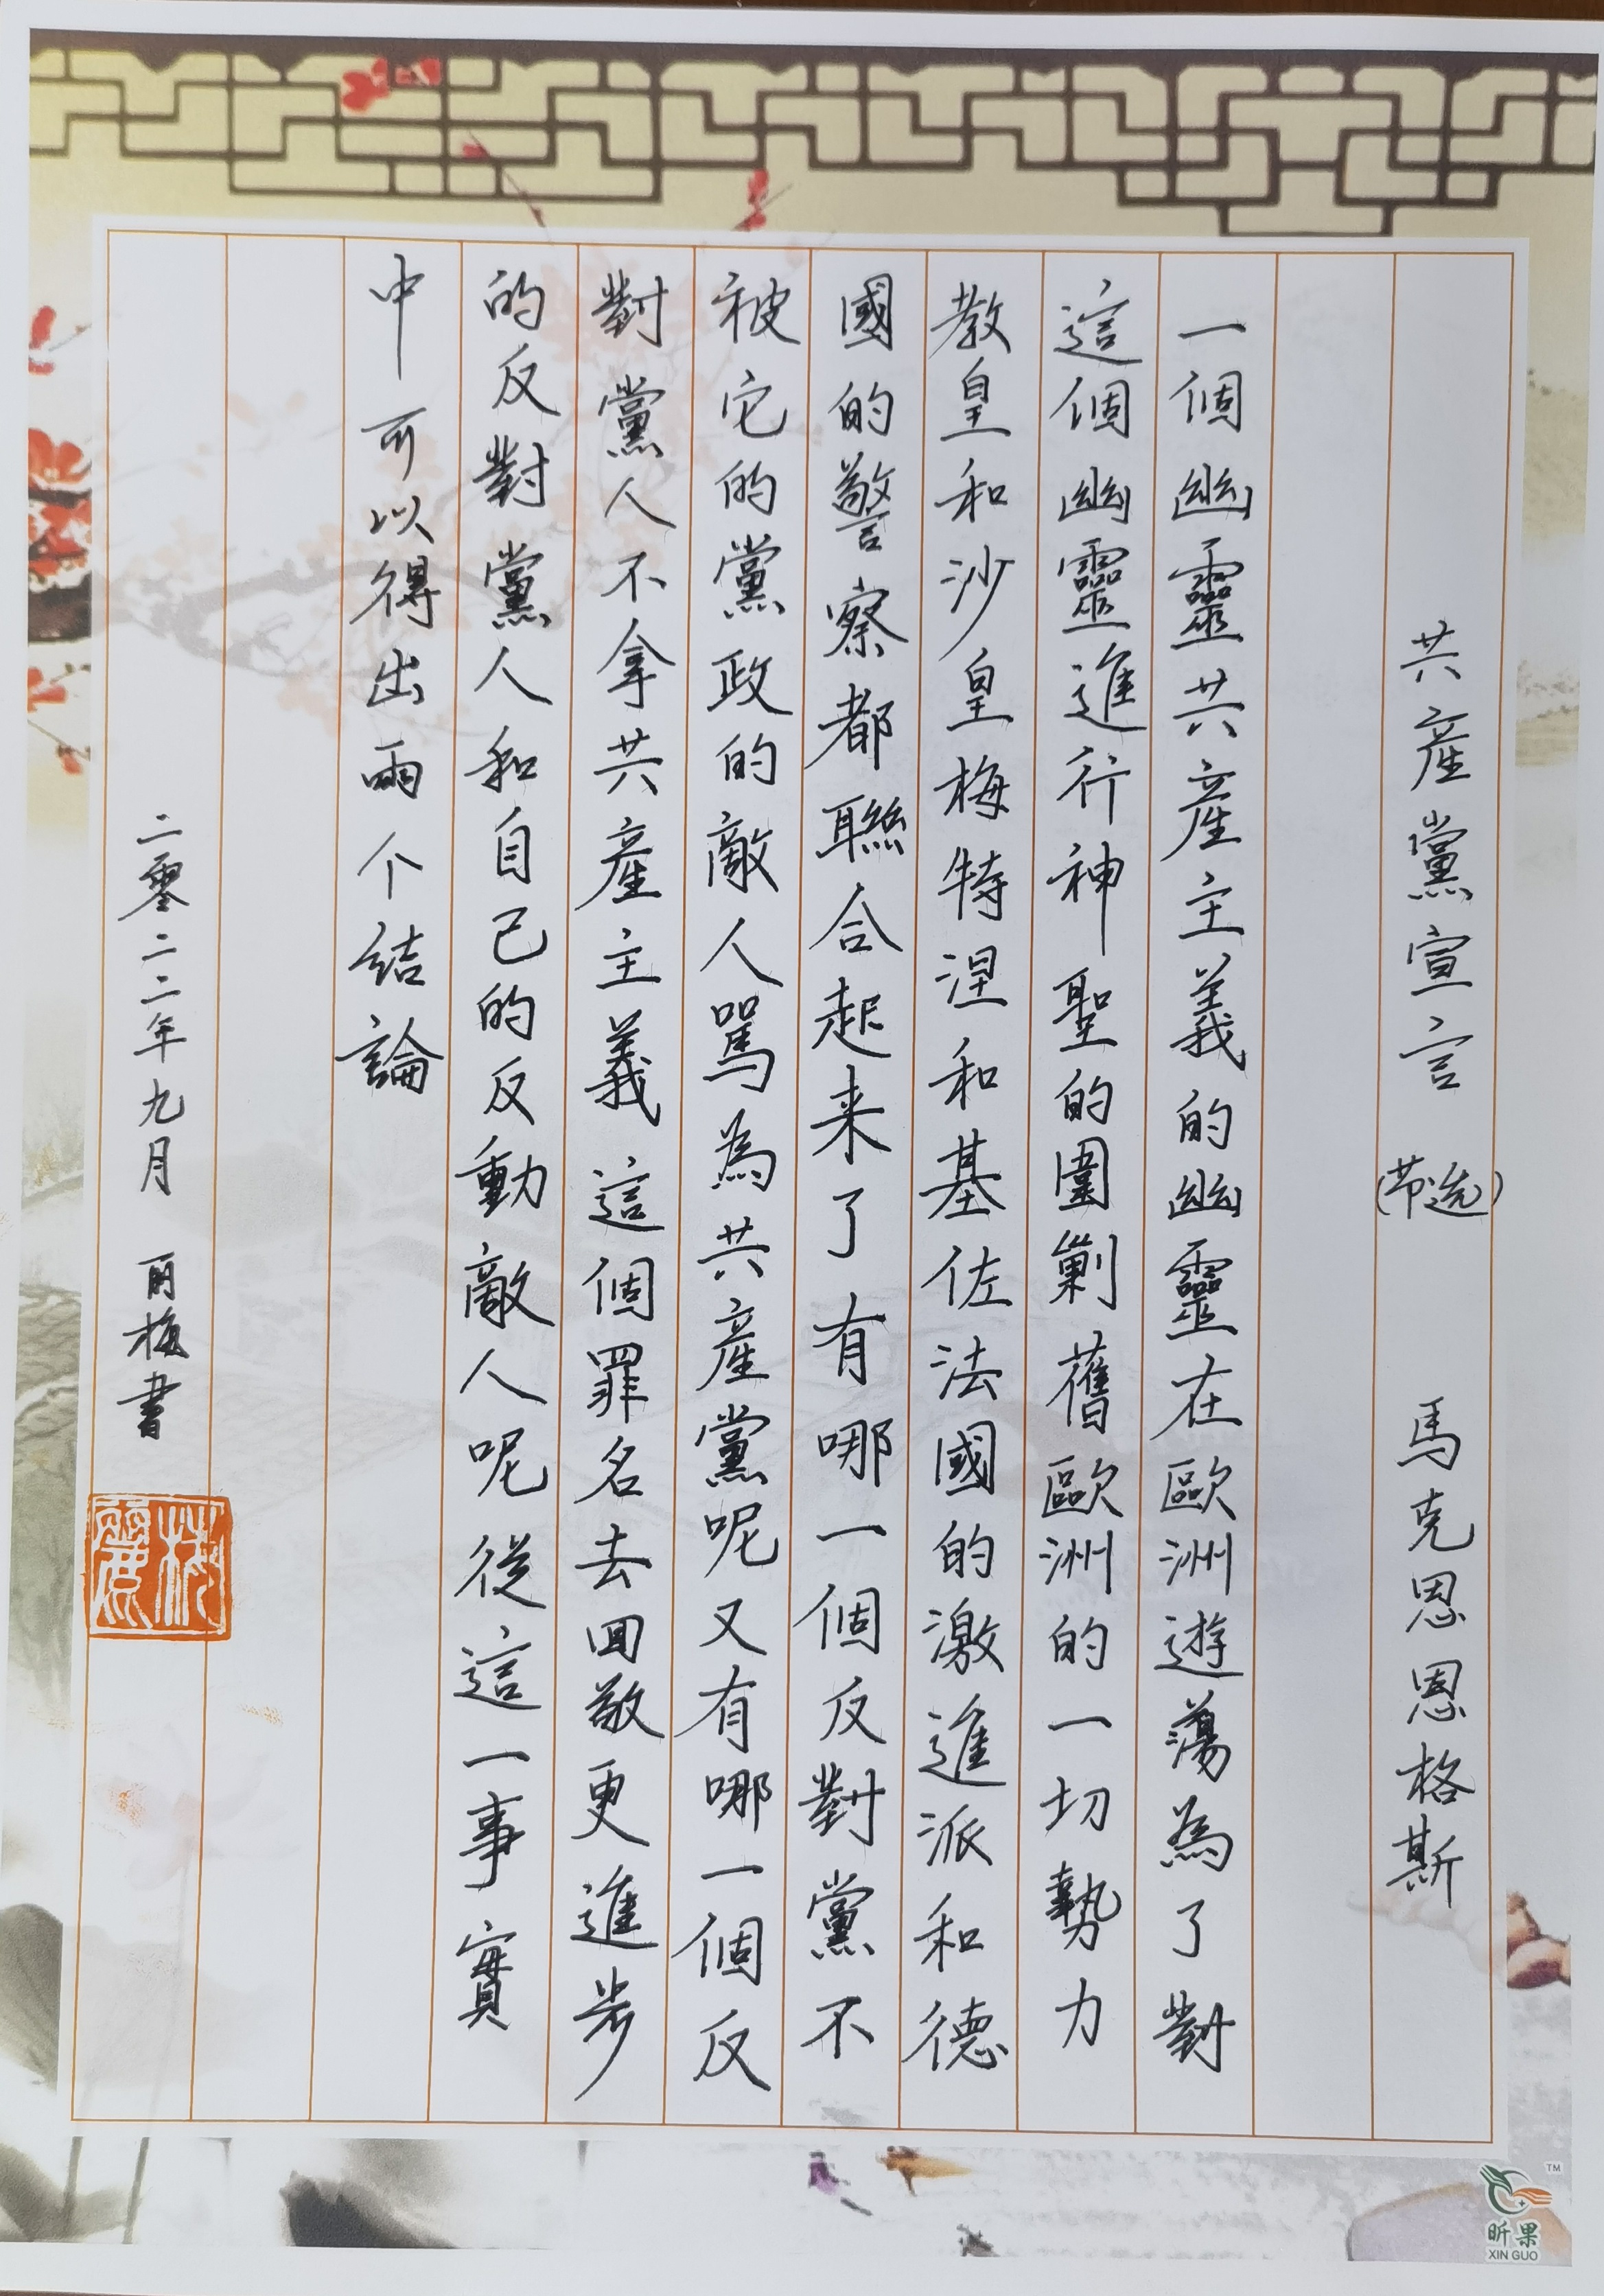 共產黨宣言（节选） 馬克思恩格斯
一個幽靈共產主義的幽靈在歐洲遊蕩為了對
這個幽靈進行神聖的圍剿舊歐洲的一切勢力
教皇和沙皇梅特涅和基佐法國的激進派和德
國的警察都聯合起来了有哪一個反對黨不
被它的黨政的敵人駡為共產黨呢又有哪一個反
對黨人不拿共產主義這個罪名去回敬更進步
的反對黨人和自己的反動敵人呢從這一事實
中可以得出兩个结論
二零二二年九月 丽梅書
麗梅
昕果
XIN GUO
TM